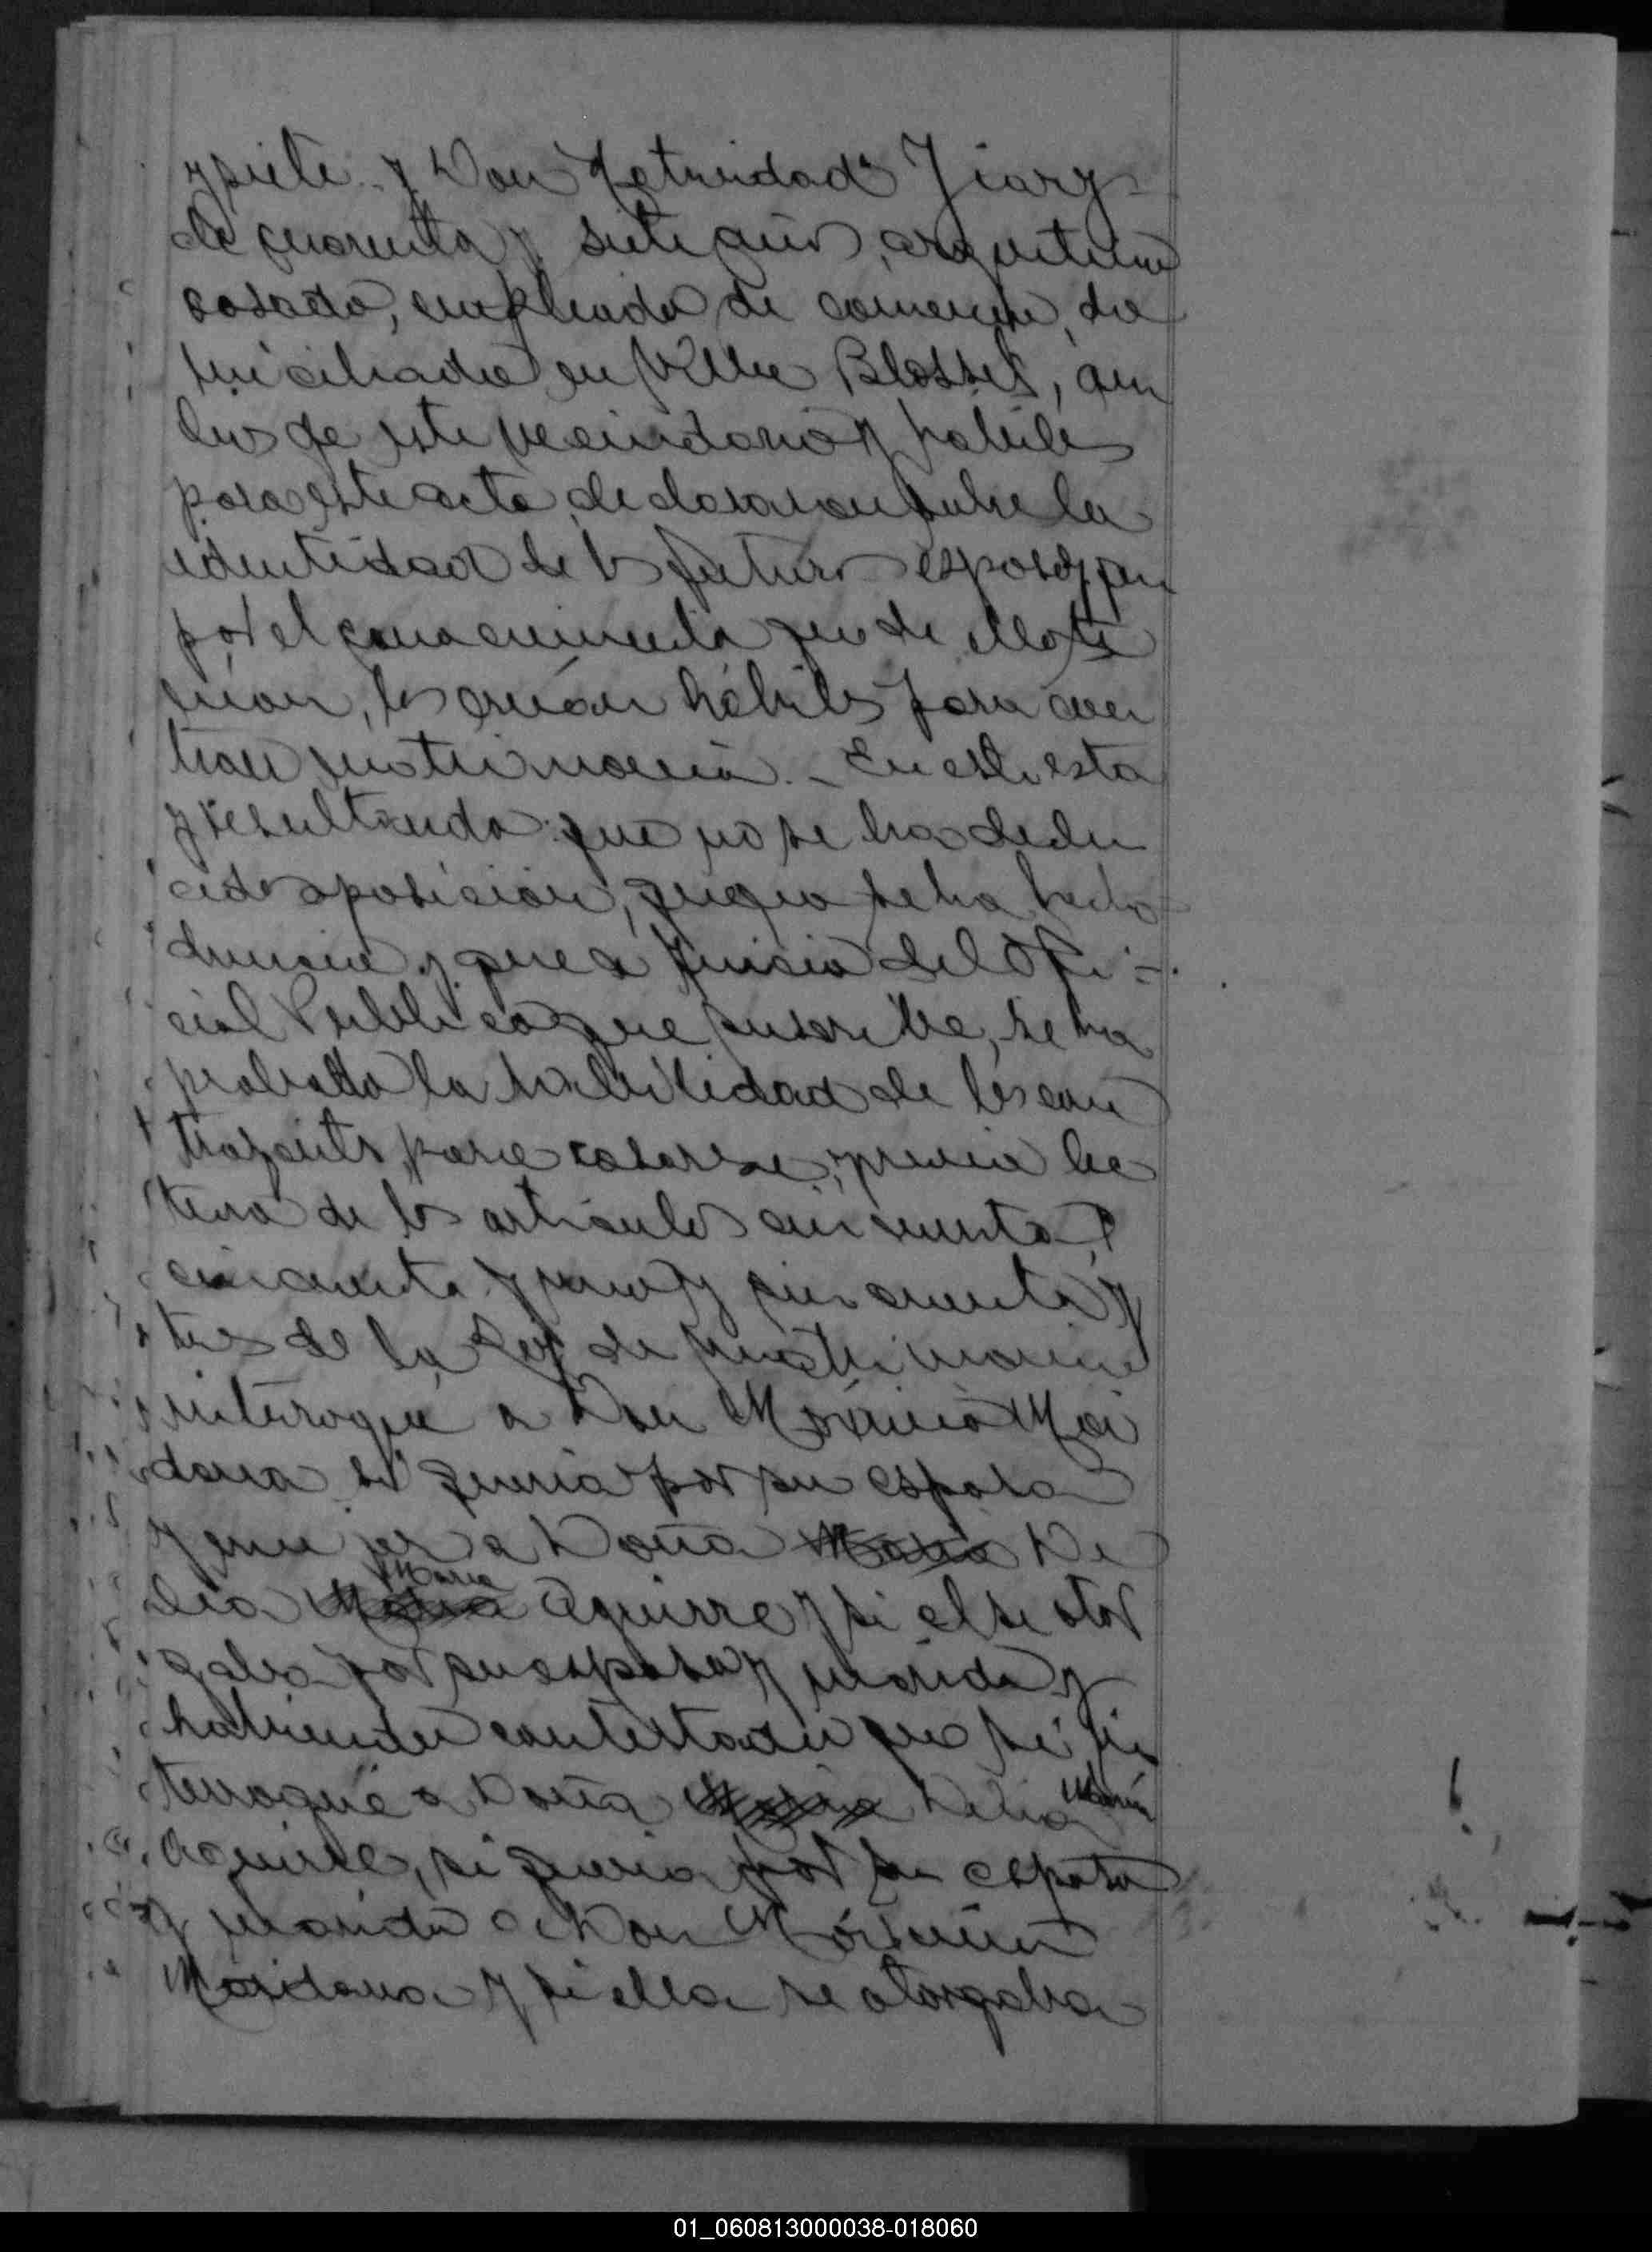 y siete y Don Trinidad
de cuarenta y siete años, argentino
casado, empleado de comercio, do
miciliado en Villa Blosset, am
bos de este vecindario y habiles
para este acto, declararon sobre la
identidad de los futuros esposos y que
por el conocimiento que de ellos te
nían, los creían hábiles para con
traer matrimonio. En este esta
y resultando que no se ha dedu
cido oposicion, que no se ha hecho
denuncia y que a juicio del Ofi-
cial Publico que suscribe, se ha
probado la habilidad de los con
trayentes para casarse, previa lec
tura de los articulos cincuenta,
cincuenta y uno y cincuenta y
tres de la Ley de Matrimonio
interrogué a Don Máximo Mai
dana si queria por su esposa
y mujer a Doña Maria De
lia Maria Maria Aguirre y si el se otor
gaba por su esposo y marido y
habiendo contestado que sí, in
terrogué a Doña Maria Delia Maria
Aguirre, si queria por su esposo
y marido a Don Máximo
Maidana y si ella se otorgaba
01_060813000038-018060